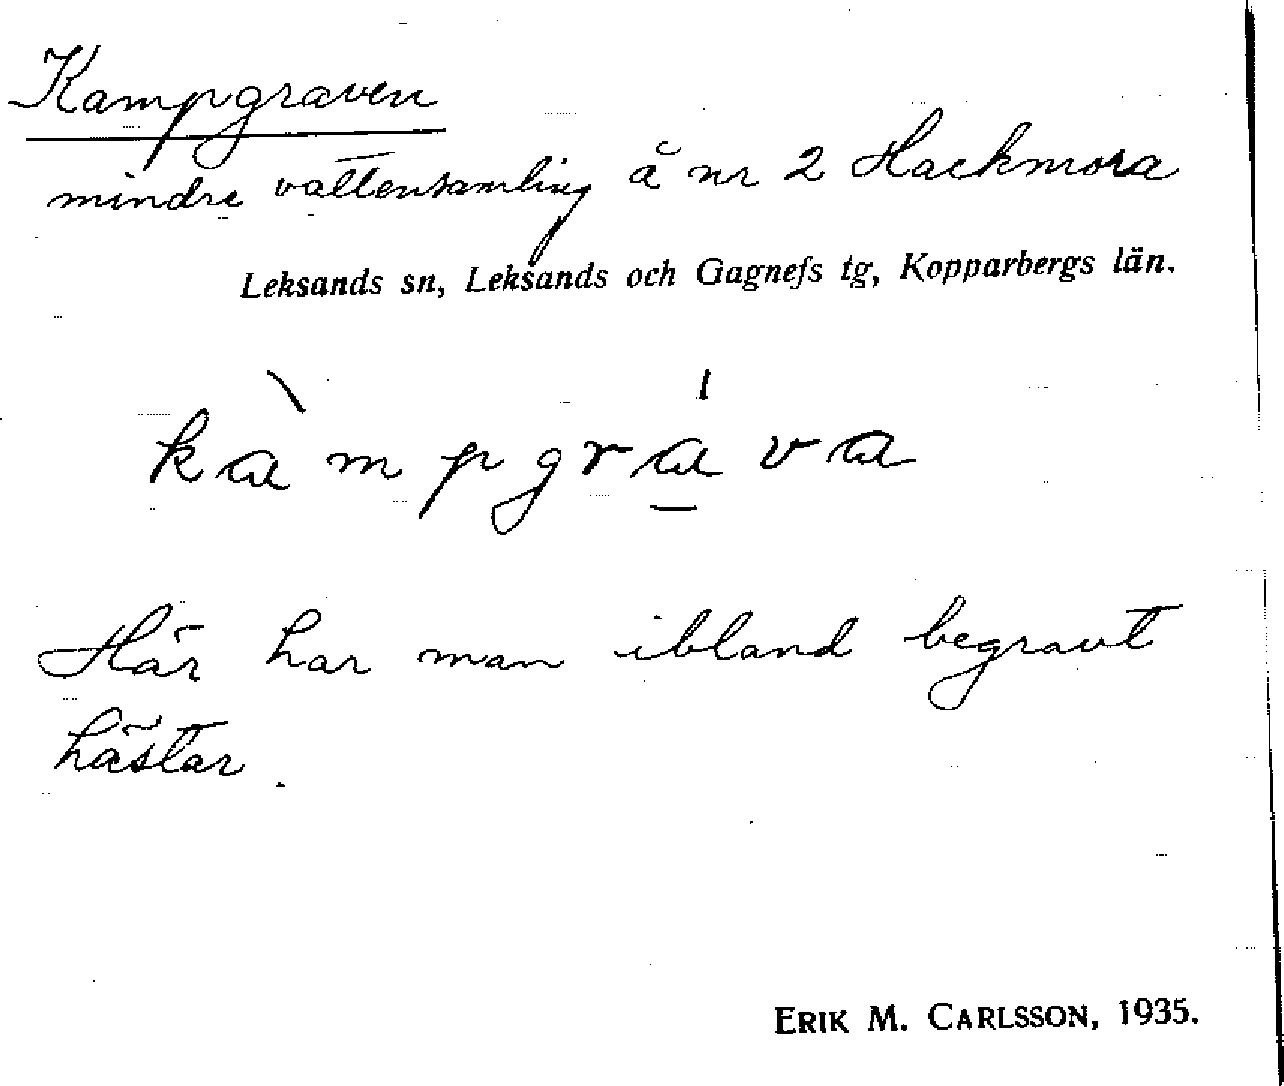 Kampgraven
mindre vattensamling å nr 2 Hackmora
Leksands sn, Leksands och Gagnefs tg, Kopparbergs län.
kàmpgráva
Här har man ibland begravt
hästar.
ERIK M. CARLSSON, 1935.